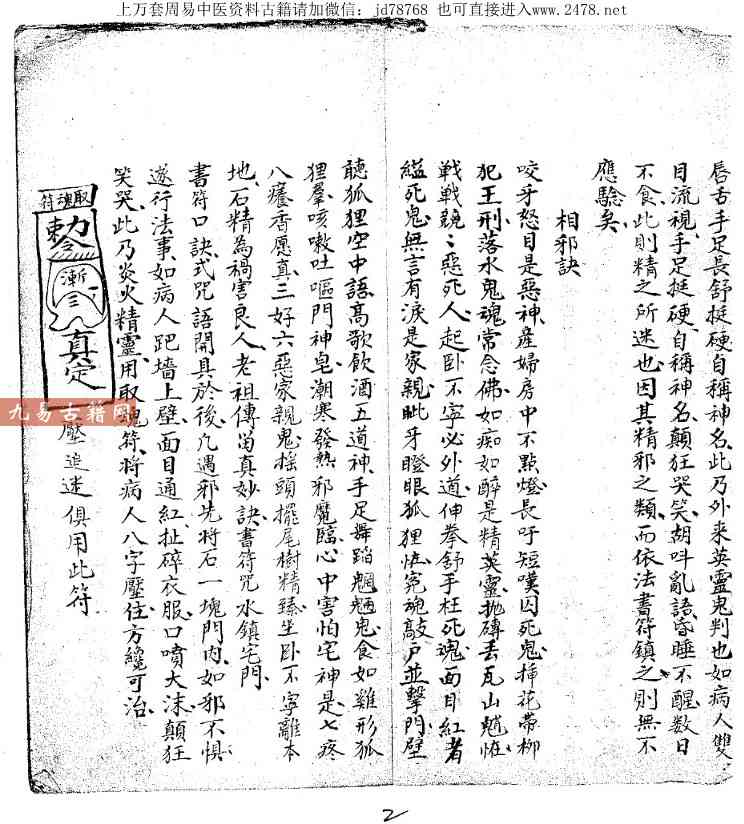 上万套周易中医资料古籍请加微信：jd78768 也可直接进入www.2478.net
唇舌手足長舒挺硬自稱神名此乃外来英靈鬼判也如病人雙
目流視手足挺硬自稱神名顛狂哭笑胡叫亂語昏睡不醒数日
不食此則精之所迷也因其精邪之類而依法書符鎮之則無不
應驗矣
相邪訣
咬牙怒目是惡神產婦房中不點燈長吁短嘆囚死鬼挿花帶柳
犯王刑落水鬼魂常念佛如痴如醉是精英靈抛磚丢瓦山魈怪
戰戰競〻惡死人起卧不寧必外道伸拳舒手枉死魂面目紅者
縊死鬼無言有淚是家親呲牙瞪眼狐狸怪冤魂敲户並擊門壁
聽狐狸空中語高歌飲酒五道神手足舞蹈魍魎鬼食如雞形狐
狸羣咳嗽吐嘔門神皂潮寒發熱邪魔臨心中害怕宅神是七疼
八癢香愿真三好六惡家親鬼摇頭擺尾樹精臻坐卧不寧離本
地石精為禍害良人老祖傳畄真妙訣書符咒水鎮宅門
書符口訣式咒語開具於後凢遇邪先将石一塊門内如邪不惧
遂行法事如病人跁墻上壁面目通紅扯碎衣服口噴大沫顛狂
笑哭此乃炎火精靈用取魂符将病人八字壓住方纔可治
取魂符
勅令
漸
三
真定
壓追迷俱用此符
九易古籍网
2